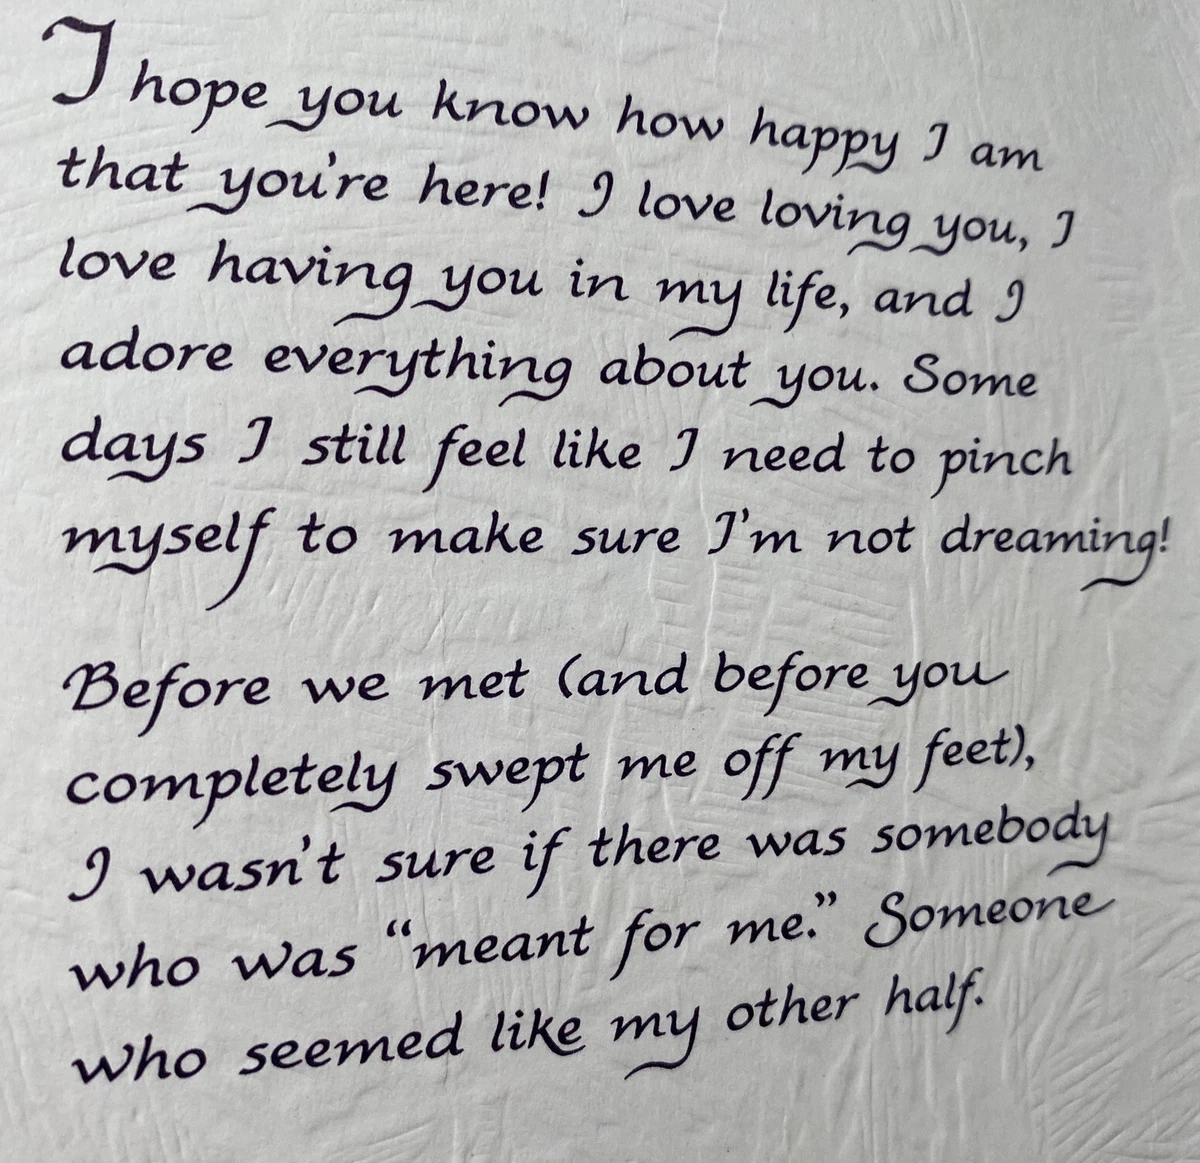 I hope you know how happy I am
that you're here! I love loving you, I
love having you in my life, and I
adore everything about you. Some
days I still feel like I need to pinch
myself to make sure I'm not dreaming!
Before we met (and before you
completely swept me off my feet),
I wasn't sure if there was somebody
who was “meant for me.” Someone
who seemed like my other half.